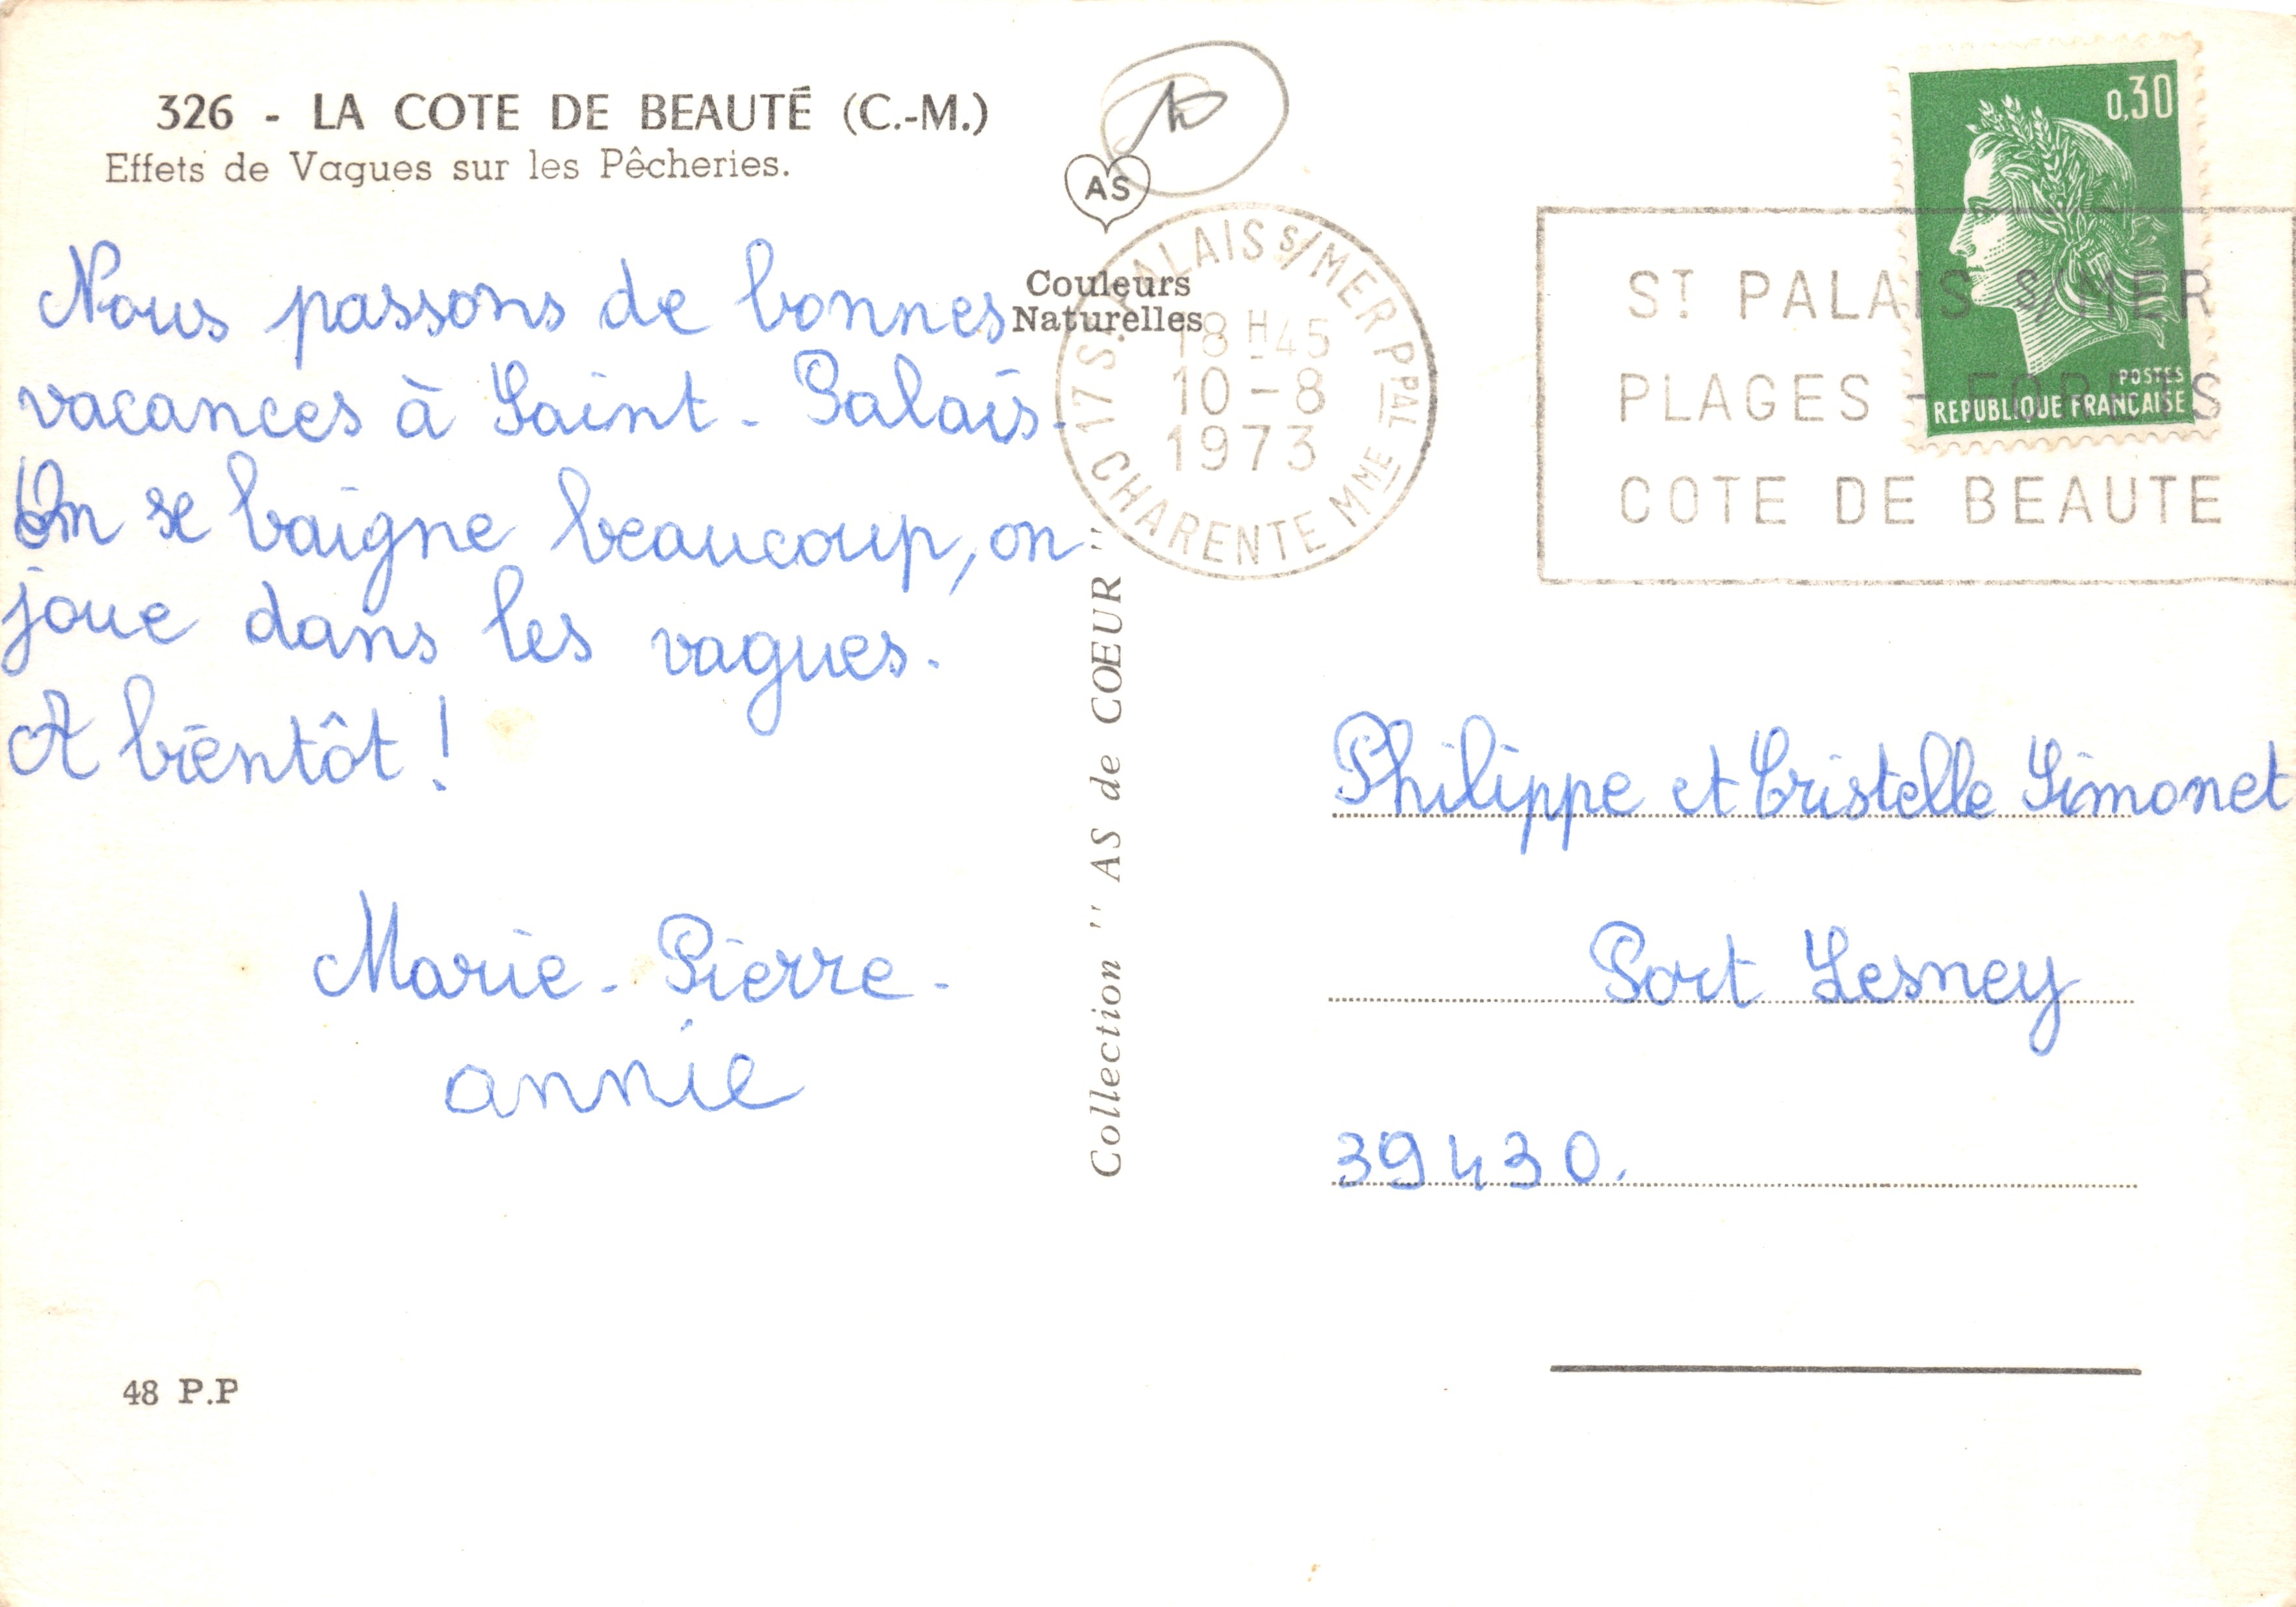 326 - LA COTE DE BEAUTÉ (C.-M.)
Effets de Vagues sur les Pêcheries.
Nous passons de bonnes
vacances à Saint-Palais.
On se baigne beaucoup, on
joue dans les vagues.
A bientôt !
Marie-Pierre-
annie
48 P.P
AS
Couleurs
Naturelles
Collection " AS de CŒUR "
17 ST PALAIS S/MER PPAL
18H45
10-8
1973
CHARENTE MME
0,30
POSTES
REPUBLIQUE FRANÇAISE
ST PALAIS S/MER
PLAGES - FORETS
COTE DE BEAUTE
Philippe et Cristelle Simonet
Port Lesney
39430.